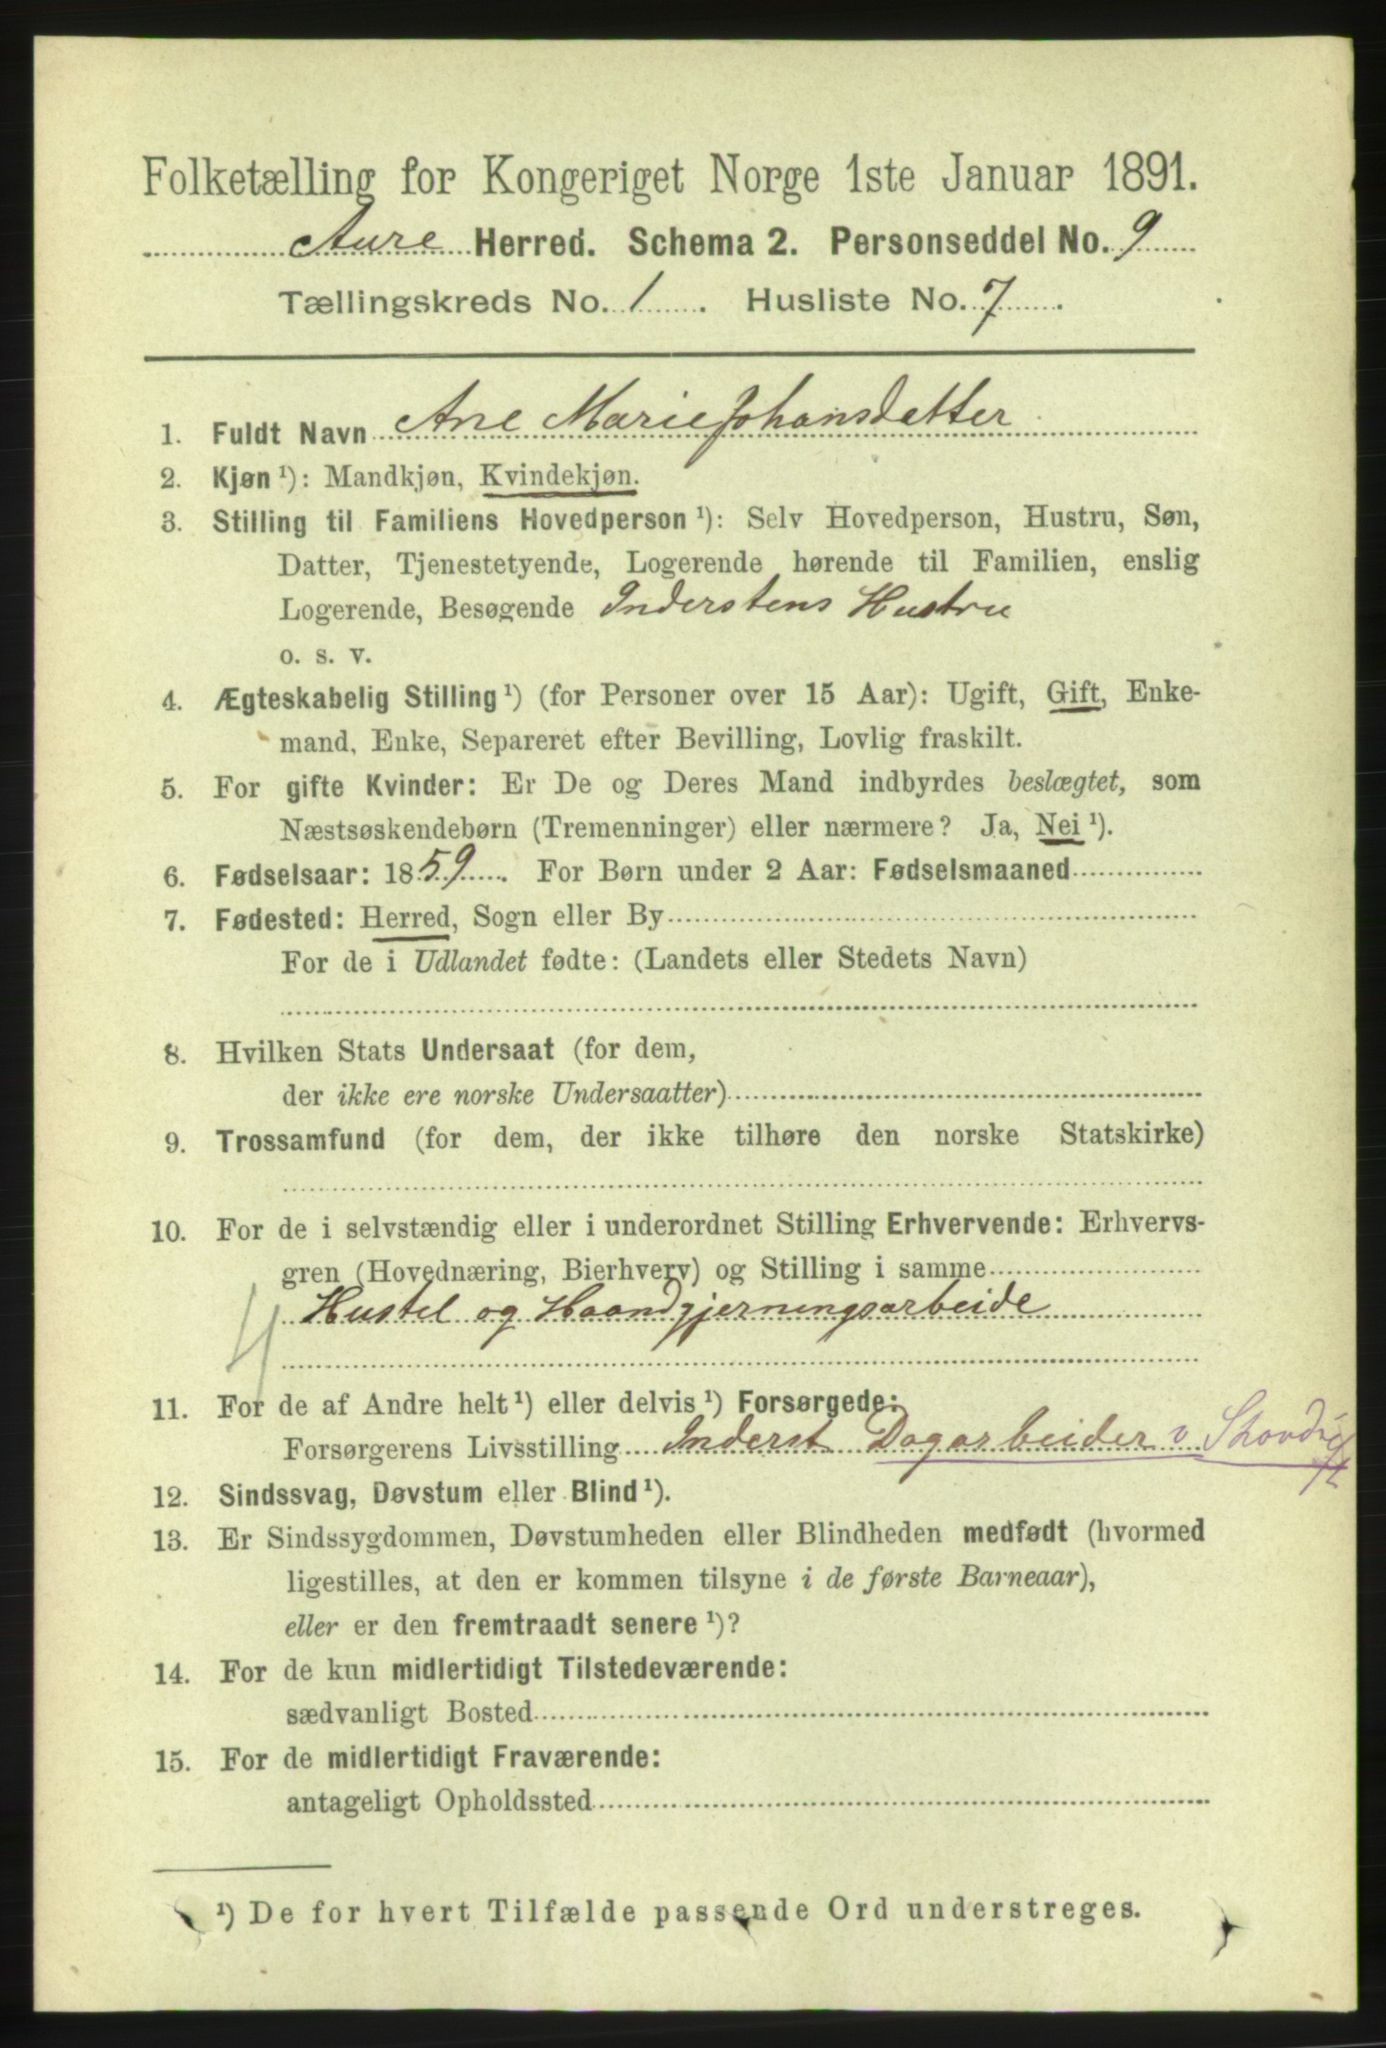 Folketælling for Kongeriget Norge 1ste Januar 1891.
Aure Herred. Schema 2. Personseddel No. 9
Tællingskreds No. 1. Husliste No. 7.
1. Fuldt Navn Ane Marie Johansdatter
2. Kjøn ¹): Mandkjøn, Kvindekjøn.
3. Stilling til Familiens Hovedperson ¹): Selv Hovedperson, Hustru, Søn,
Datter, Tjenestetyende, Logerende hørende til Familien, enslig
Logerende, Besøgende Inderstens Hustru
o. s. v.
4. Ægteskabelig Stilling ¹) (for Personer over 15 Aar): Ugift, Gift, Enke-
mand, Enke, Separeret efter Bevilling, Lovlig fraskilt.
5. For gifte Kvinder: Er De og Deres Mand indbyrdes beslægtet, som
Næstsøskendebørn (Tremenninger) eller nærmere? Ja, Nei ¹).
6. Fødselsaar: 1859. For Børn under 2 Aar: Fødselsmaaned
7. Fødested: Herred, Sogn eller By
For de i Udlandet fødte: (Landets eller Stedets Navn)
8. Hvilken Stats Undersaat (for dem,
der ikke ere norske Undersaatter)
9. Trossamfund (for dem, der ikke tilhøre den norske Statskirke)
10. For de i selvstændig eller i underordnet Stilling Erhvervende: Erhvervs-
gren (Hovednæring, Bierhverv) og Stilling i samme
Hustel og Haandgjerningsarbeide
4
11. For de af Andre helt ¹) eller delvis ¹) Forsørgede:
Forsørgerens Livsstilling Inderst Dagarbeider v
12. Sindssvag, Døvstum eller Blind ¹).
13. Er Sindssygdommen, Døvstumheden eller Blindheden medfødt (hvormed
ligestilles, at den er kommen tilsyne i de første Barneaar),
eller er den fremtraadt senere ¹)?
14. For de kun midlertidigt Tilstedeværende:
sædvanligt Bosted
15. For de midlertidigt Fraværende:
antageligt Opholdssted
¹) De for hvert Tilfælde passende Ord understreges.